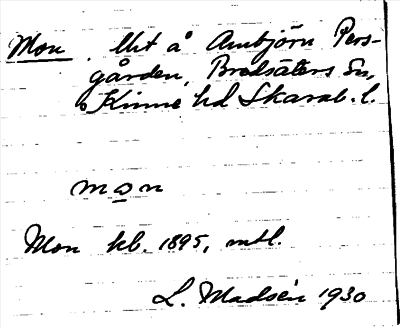 Mon. Utt å Ambjörn Pers-
gården, Bredsäters Sn,
Kinne hd Skarab. l.
mon
Mon kb. 1895, mtl.
L. Madsén 1930